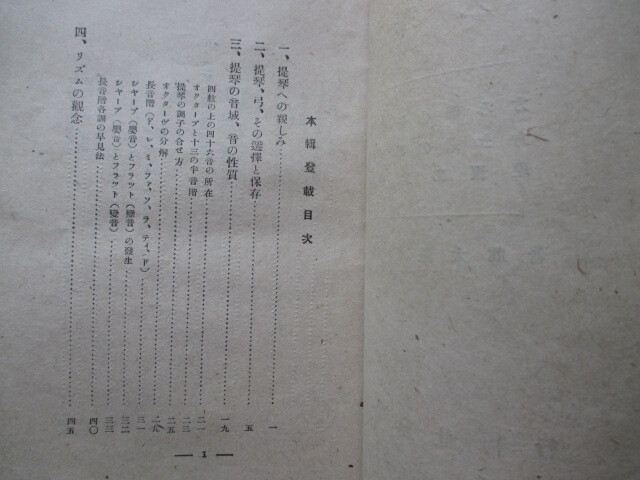 本輯登載目次
一、提琴への親しみ……一
二、提琴、弓、その選擇と保存……五
三、提琴の音域、音の性質……一九
四絃の上の四十六音の所在……二一
オクターブと十三の半音階……二三
提琴の調子の合せ方……二五
オクターヴの分解
長音階（ド、レ、ミ、ファ、ソ、ラ、ティ、ド）……二九
シャープ（嬰音）とフラット（變音）の發生……三一
シャープ（嬰音）とフラット（變音）……三三
長音階各調の早見法……四〇
四、リズムの觀念……四五
— 1 —